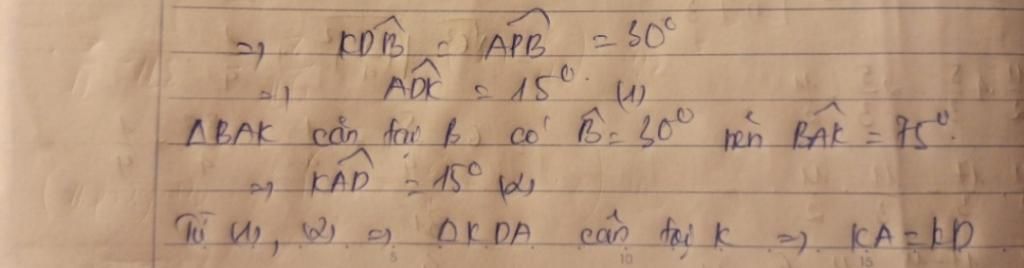 => KDB̂ = APB̂ = 30°
=> ADK̂ = 15° (1)
ΔBAK cân tại B có B̂ = 30° nên BAK̂ = 75°.
=> KAD̂ = 15° (2)
Từ (1), (2) => ΔKDA cân tại K => KA = KD
5 10 15